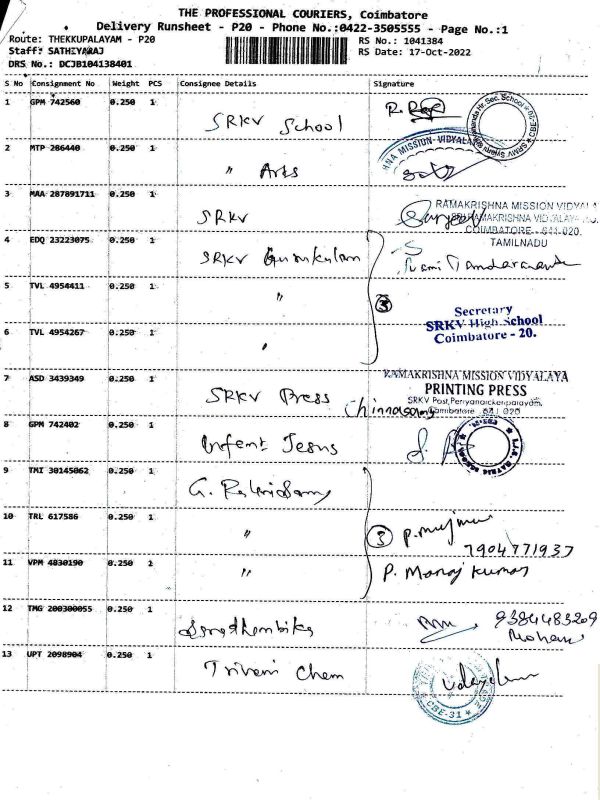 THE PROFESSIONAL COURIERS, Coimbatore
Delivery Runsheet - P20 - Phone No.:0422-3505555 - Page No.:1
Route: THEKKUPALAYAM - P20
RS No.: 1041384
Staff: SATHIYARAJ
RS Date: 17-Oct-2022
DRS No.: DCJB104138401
S No Consignment No Weight PCS Consignee Details Signature
1 GPM 742560 0.250 1 SRKV School
2 MTP 286440 0.250 1 " Arts
MISSION VIDYALAYA
3 MAA 287891711 0.250 1 SRKV
RAMAKRISHNA MISSION VIDYALA
COIMBATORE - 641 020.
TAMILNADU
4 EDQ 23223075 0.250 1 SRKV Gurukulam
5 TVL 4954411 0.250 1 " 3
Secretary
SRKV High School
Coimbatore - 20.
6 TVL 4954267 0.250 1 "
7 ASD 3439349 0.250 1 SRKV Press
RAMAKRISHNA MISSION VIDYALAYA
PRINTING PRESS
SRKV Post, Periyanaickenpalayam,
Coimbatore - 641 020
Chinnasamy
8 GPM 742402 0.250 1 Infent Jesus
9 TMI 30145062 0.250 1 G.
10 TRL 617586 0.250 1 " 3
7904771937
11 VPM 4830190 0.250 2 " P. Manoj Kumar
12 TMG 200300055 0.250 1
9384483209
Mohan
13 UPT 2098904 0.250 1 Triveni Chem
CBE-31